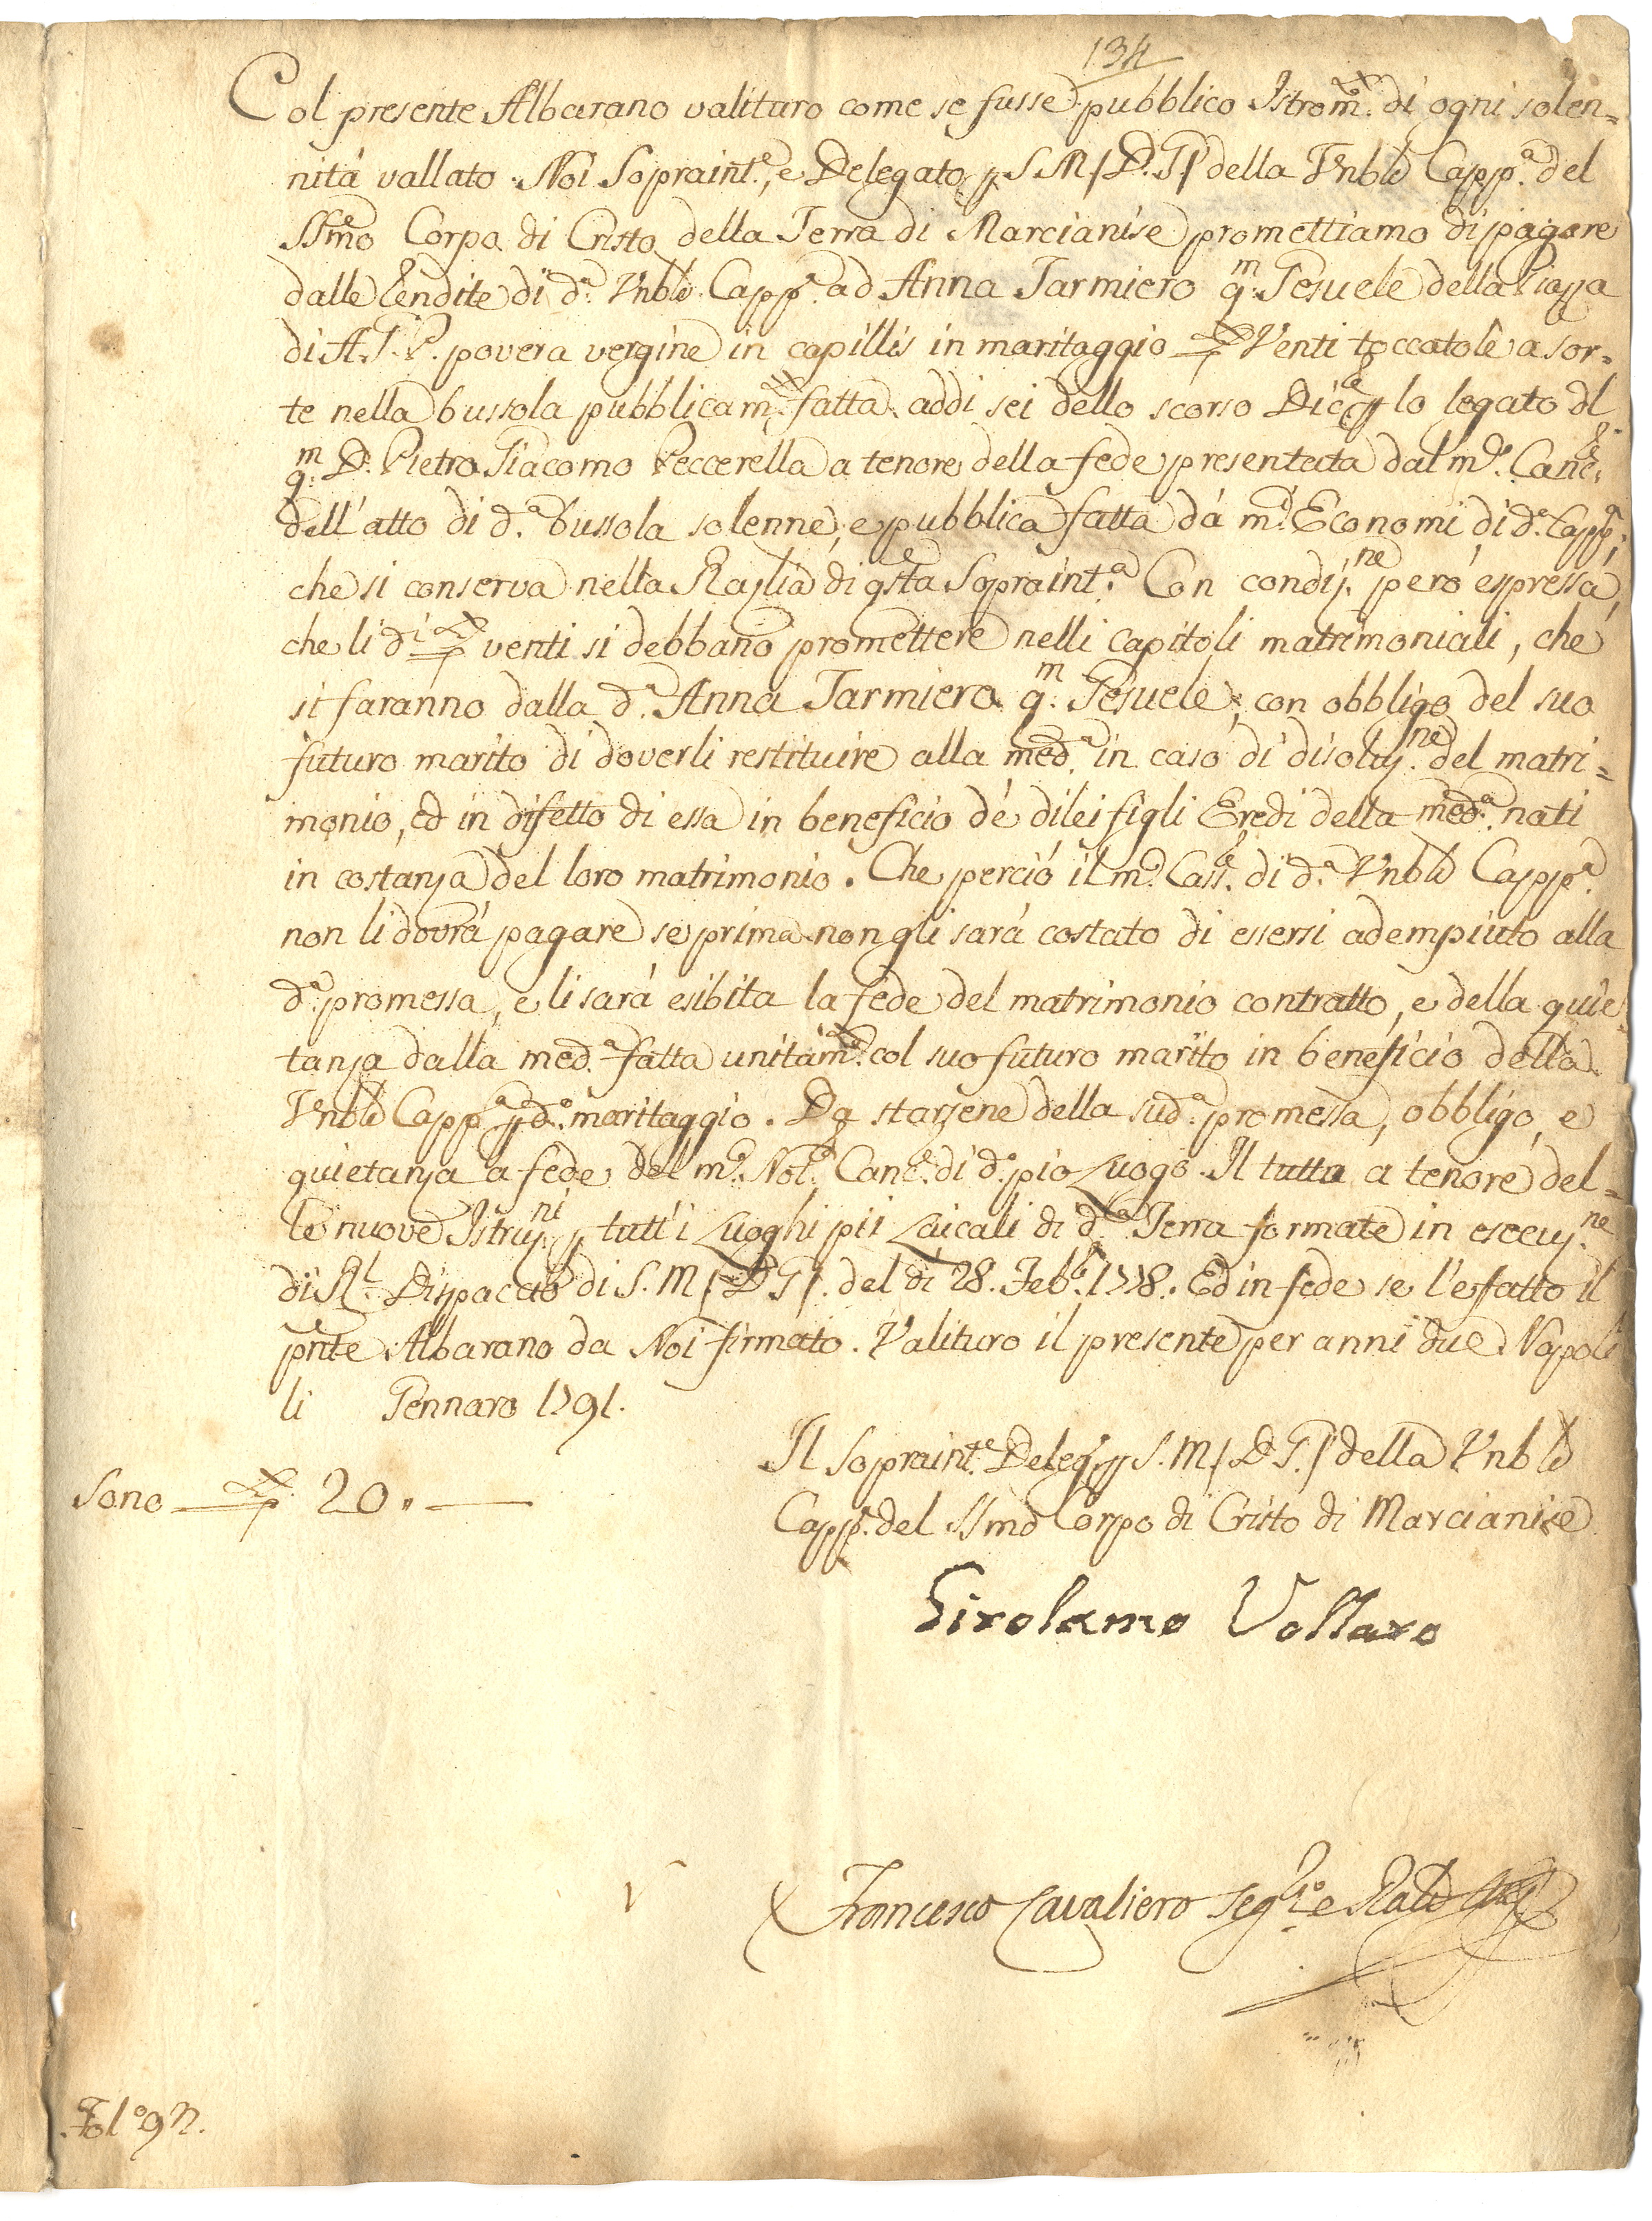 134
Col presente Albarano valituro come se fusse pubblico Istrom.to di ogni solen=
nità vallato. Noi Sopraint.e, e Delegato p S. M. (D. G.) della Vnble Capp.a del
SSmo Corpo di Cristo della Terra di Marcianise promettiamo di pagare
dalle Rendite di d.a Vnble Capp.a ad Anna Tarmiero q.m Gesuele della Piazza
di A. G. P. povera vergine in capillis in maritaggio Venti toccatole a sor=
te nella bussola pubblicam.te fatta addi sei dello scorso Dic.e p lo legato del
q.m D. Pietro Giacomo Peccerella a tenore della fede presentata dal m.o Canc.e
dell'atto di d.a bussola solenne, e pubblica fatta dà m.i Economi di d.a Capp.a,
che si conserva nella di qsta Sopraint.a Con condiz.ne però espressa,
che li d.i venti si debbano promettere nelli capitoli matrimoniali, che
si faranno dalla d.a Anna Tarmiero q.m Gesuele, con obbligo del suo
futuro marito di doverli restituire alla med.a in caso di disoluz.ne del matri=
monio, ed in difetto di essa in beneficio dè di lei figli Eredi della med.a nati
in costanza del loro matrimonio. Che perciò il m.o Cass.e di d.a Vnble Capp.a
non li dovrà pagare se prima non gli sarà costato di essersi adempiuto alla
d.a promessa, e li sarà esibita la fede del matrimonio contratto, e della quie=
tanza dalla med.a fatta unitam.te col suo futuro marito in beneficio della
Vnble Capp.a p d.o maritaggio. Da starsene della sud.a promessa, obbligo, e
quietanza a fede del m.o Not.r Canc.e di d.o pio Luogo. Il tutto a tenore del=
le nuove Istruz.ni p tutt'i Luoghi pii Laicali di d.a Terra formate in esecuz.ne
di R.l Dispaccio di S. M. (D. G.) del dì 28. Feb.o 1778. Ed in fede se l'è fatto il
pnte Albarano da Noi firmato. Valituro il presente per anni due Napoli
li Gennaro 1791.
Il Sopraint.e Deleg.o p S. M. (D. G.) della Vnble
Capp.a del SSmo Corpo di Cristo di Marcianise
Sono 20.
Girolamo Vollaro
Francesco Cavaliero Seg.rio e
Fol.o 97.